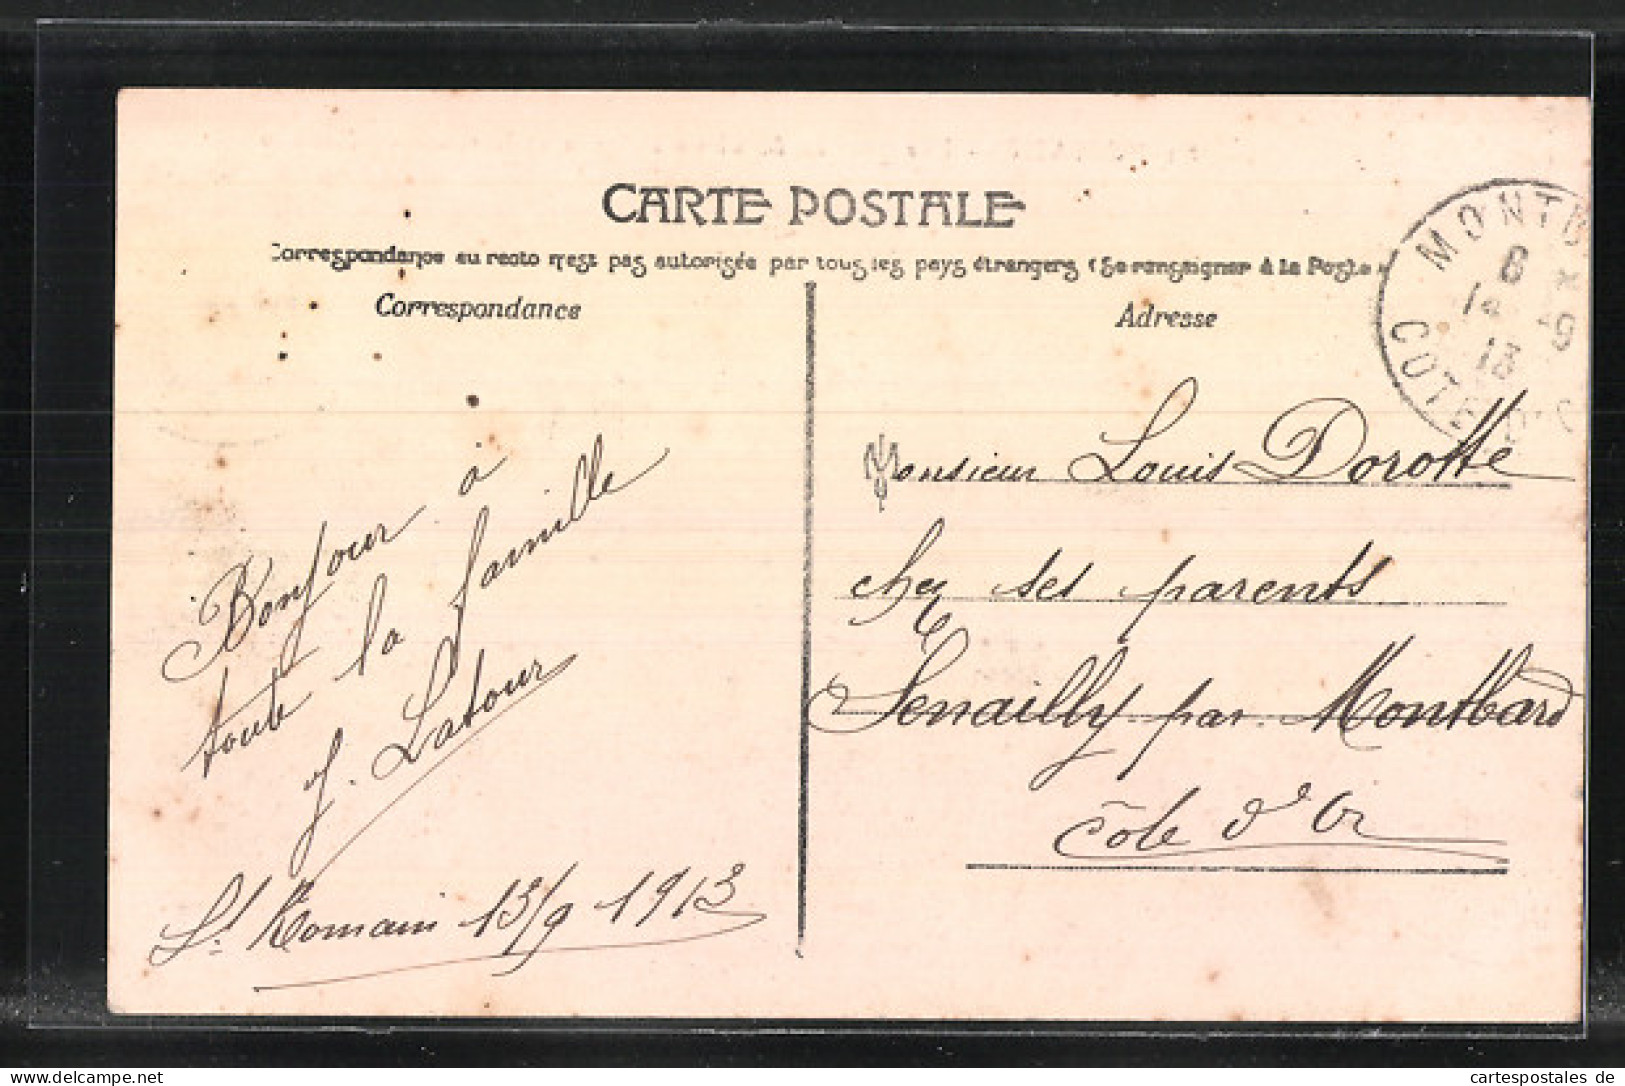 CARTE POSTALE
Correspondance au recto n'est pas autorisée par tous les pays étrangers (Se renseigner à la Poste)
Correspondance
Bonjour à
toute la famille
J. Latour
St Romain 13/9 1913
Adresse
Monsieur Louis Dorotte
chez ses parents
Senailly par Montbard
Côte d'Or
MONTB
B *
-9
13
COTE D'O
cartespostales de